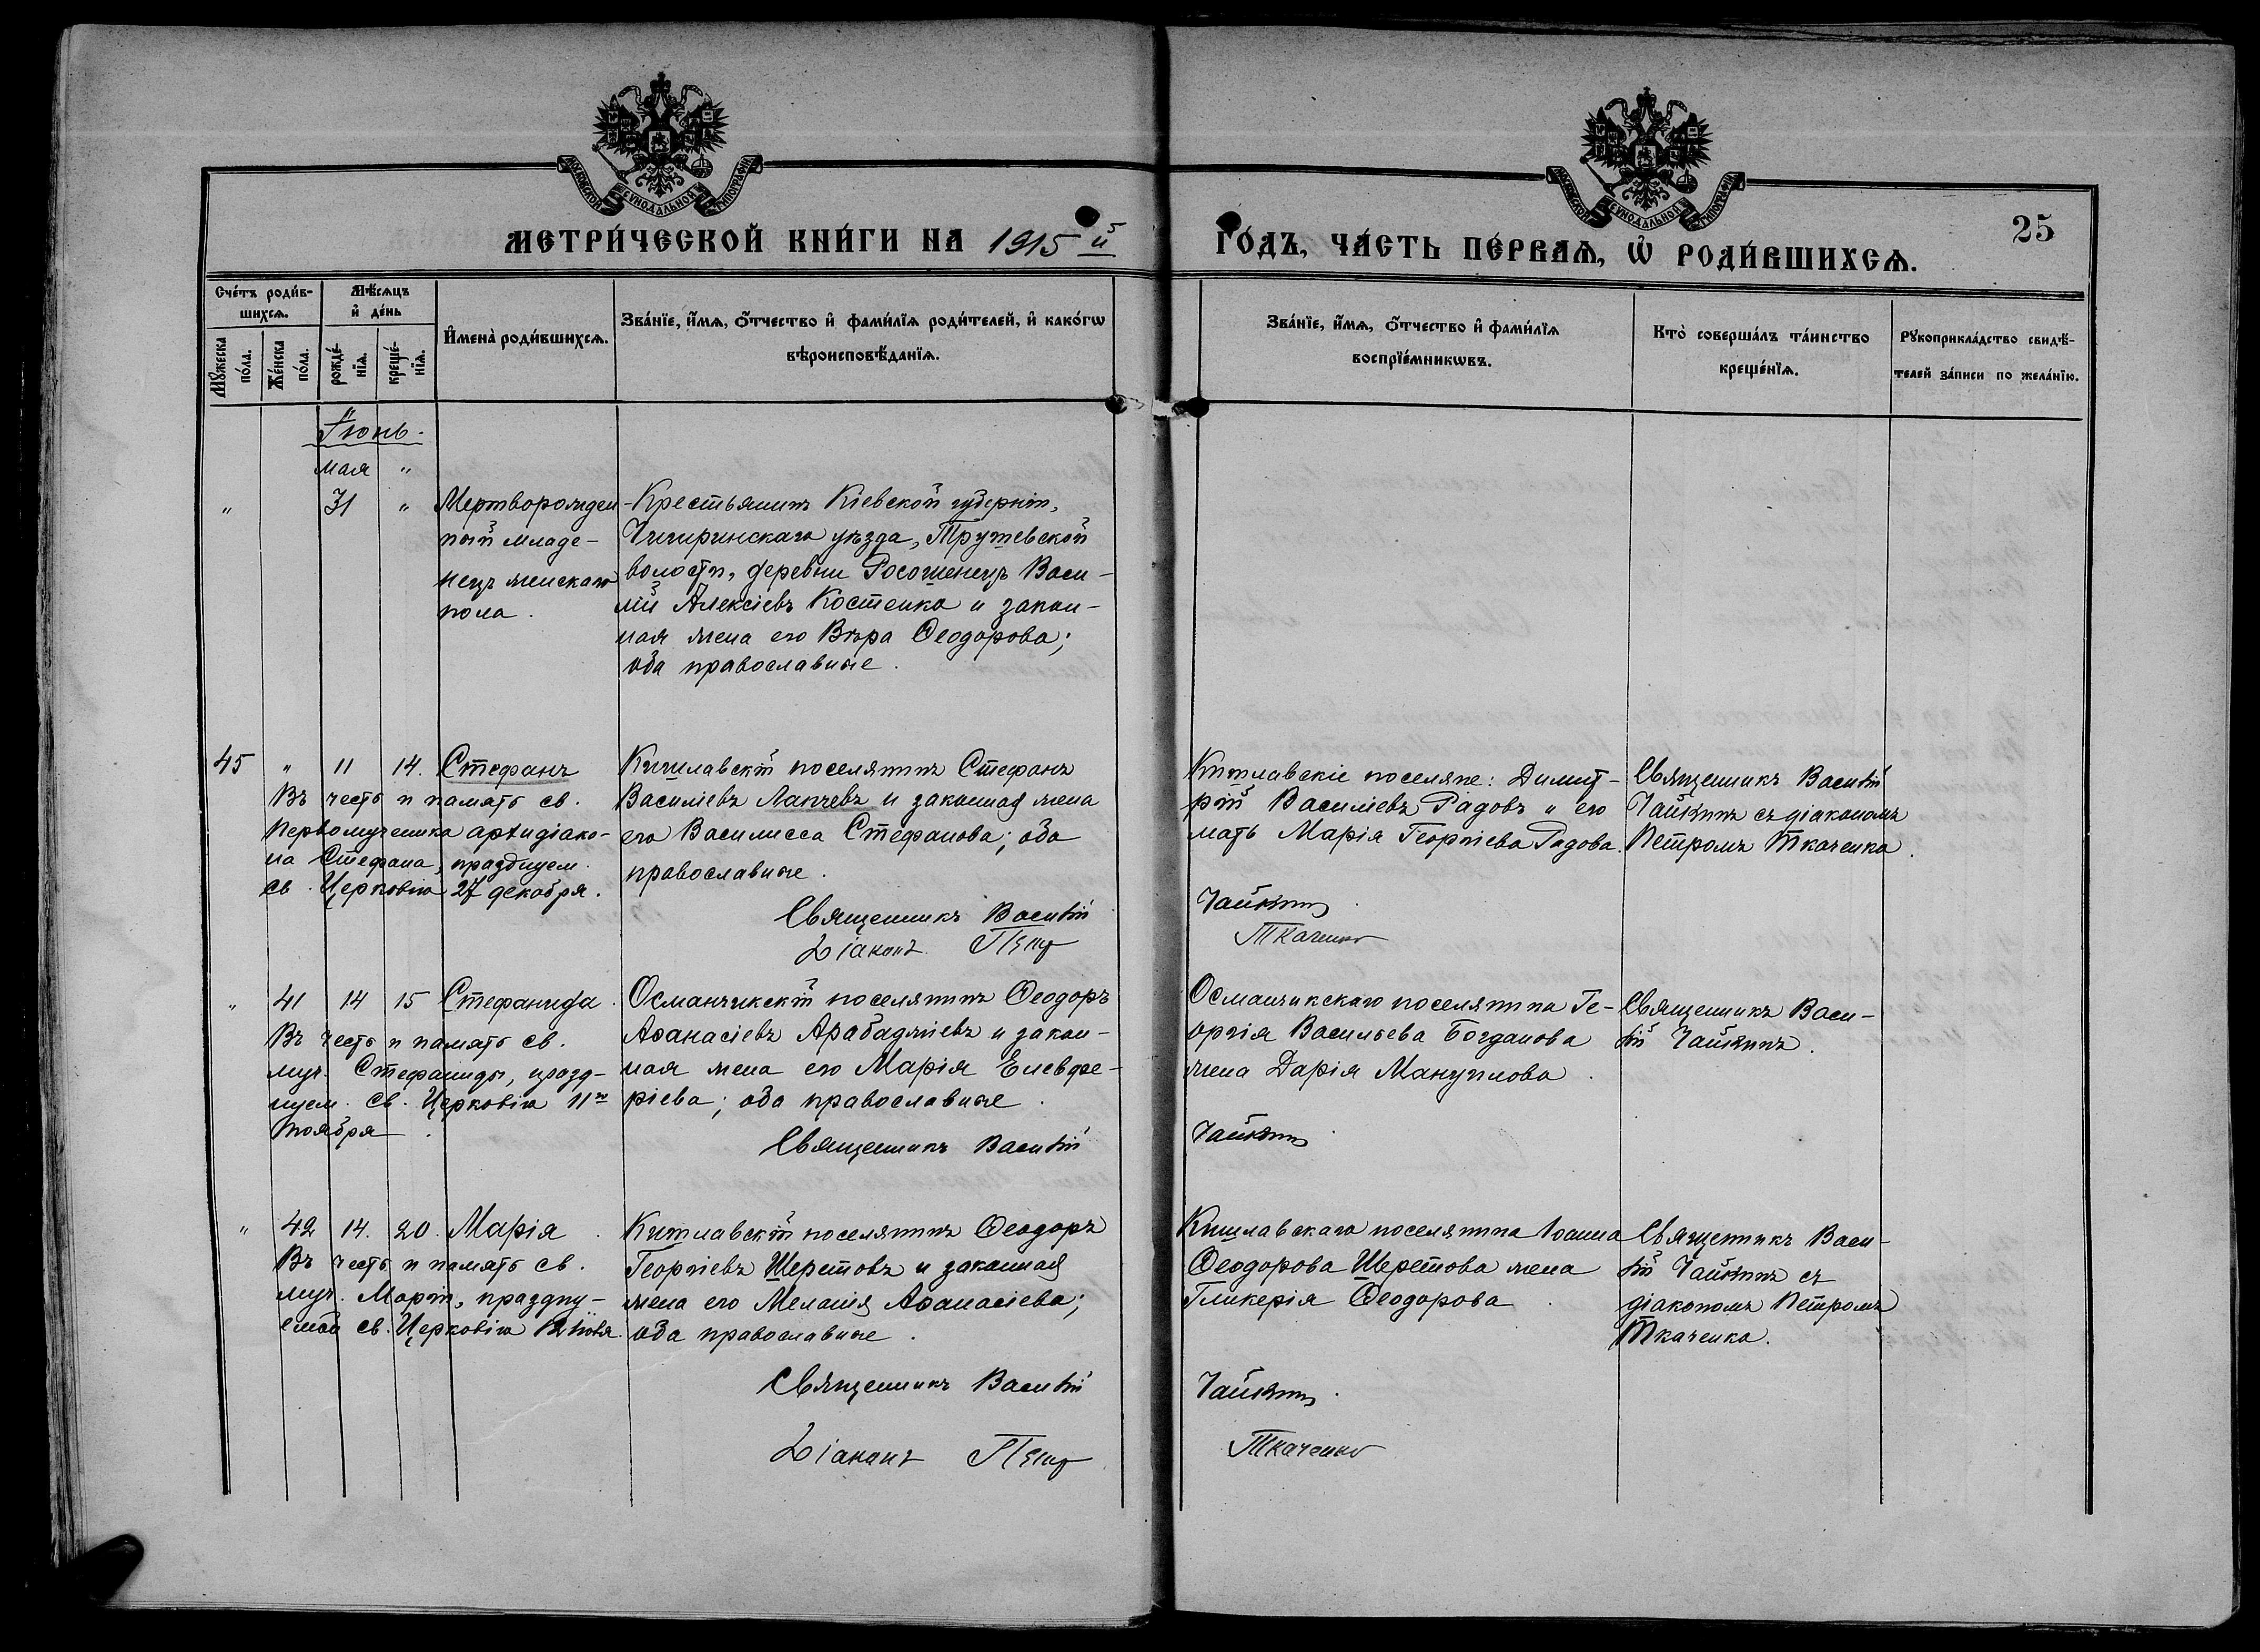 МОСКОВСКОЙ СУНОДАЛЬНОЙ ТИПОГРАФІИ
МОСКОВСКОЙ СУНОДАЛЬНОЙ ТИПОГРАФІИ
25
МЕТРИ́ЧЕСКОЙ КНИ́ГИ НА 1915 й
ГО́ДЪ, ЧА́СТЬ ПЕ́РВАѦ, Ѿ РОДИ́ВШИХСѦ.
Сче́тъ роди́в-
шихсѧ.
Мѣ́сѧцъ
и҆ де́нь
Мꙋ́жеска по́ла.
Же́нска по́ла.
рожде́-
нїѧ.
креще́-
нїѧ.
И҆мена̀ роди́вшихсѧ.
Зва́нїе, и҆́мѧ, ѻ҆́тчество и҆ фами́лїѧ роди́телей, и҆ како́гѡ
вѣроисповѣ́данїѧ.
Зва́нїе, и҆́мѧ, ѻ҆́тчество и҆ фами́лїѧ
воспрїе́мникѡвъ.
Кто̀ соверша́лъ та́инство
креще́нїѧ.
Рꙋкоприкла́дство свидѣ́-
телей за́писи по жела́нїю.
Іюнь.
мая "
" 31 " Мертворожден-
ный младе-
нецъ женскаго
пола.
Крестьянинъ Кіевской губерніи,
Чигиринскаго уѣзда, Трушевской
волости, деревни Росошенецъ Васи-
лій Алексіевъ Костенко и закон-
ная жена его Вѣра Ѳеодорова;
оба православные.
45 " 11 14. Стефанъ
Въ честь и память св.
Первомученика архидіако-
на Стефана, празднуем.
св. Церковію 27 декабря.
Кишлавскій поселянинъ Стефанъ
Василіевъ Лапчевъ и законная жена
его Василисса Стефанова; оба
православные.
Священникъ Василій
Діаконъ Петр
Кишлавскіе поселяне: Димит-
рій Василіевъ Радовъ и его
мать Марія Георгіева Радова.
Чайкинъ
Ткаченко
Священникъ Василій
Чайкинъ съ діакономъ
Петромъ Ткаченко.
" 41 14 15 Стефанида.
Въ честь и память св.
муч. Стефаниды, празд-
нуем. св. Церковію 11го
ноября.
Османчикскій поселянинъ Ѳеодоръ
Аѳанасіевъ Арабаджіевъ и закон-
ная жена его Марія Елевфе-
ріева; оба православные.
Священникъ Василій
Османчикскаго поселянина Ге-
оргія Васильева Богданова
жена Дарія Мануилова.
Чайкинъ
Священникъ Васи-
лій Чайкинъ.
" 42 14. 20. Марія.
Въ честь и память св.
муч. Маріи, праздну-
емой св. Церковію
Кишлавскій поселянинъ Ѳеодоръ
Георгіевъ Шеретовъ и законная
жена его Меланія Аѳанасіева;
оба православные.
Священникъ Василій
Діаконъ Петр
Кишлавскаго поселянина Іоанна
Ѳеодорова Шеретова жена
Гликерія Ѳеодорова.
Чайкинъ
Ткаченко
Священникъ Васи-
лій Чайкинъ съ
діакономъ Петромъ
Ткаченко.